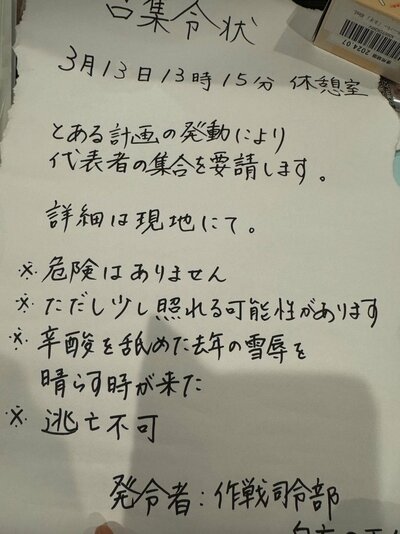 召集令状
3月13日13時15分 休憩室
とある計画の発動により
代表者の集合を要請します。
詳細は現地にて。
※危険はありません
※ただし少し照れる可能性があります
※辛酸を舐めた去年の雪辱を
晴らす時が来た
※逃亡不可
発令者:作戦司令部